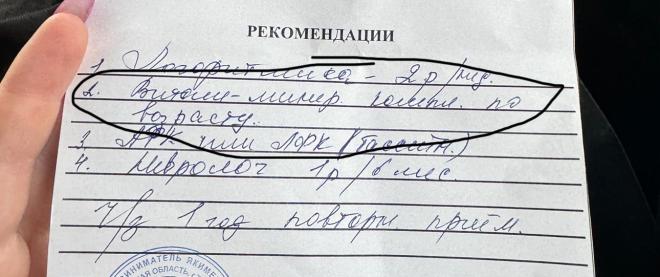 РЕКОМЕНДАЦИИ
1. Логоритмика - 2р/нед.
2. Витам-минер. компл. по
возрасту.
3. АФК или ЛФК (бассейн.)
4. Невролог 1р/6 мес.
Ч/з 1 год повторн. приём.
ПРИНИМАТЕЛЬ ЯКИМЕ
КАЯ ОБЛАСТЬ, С